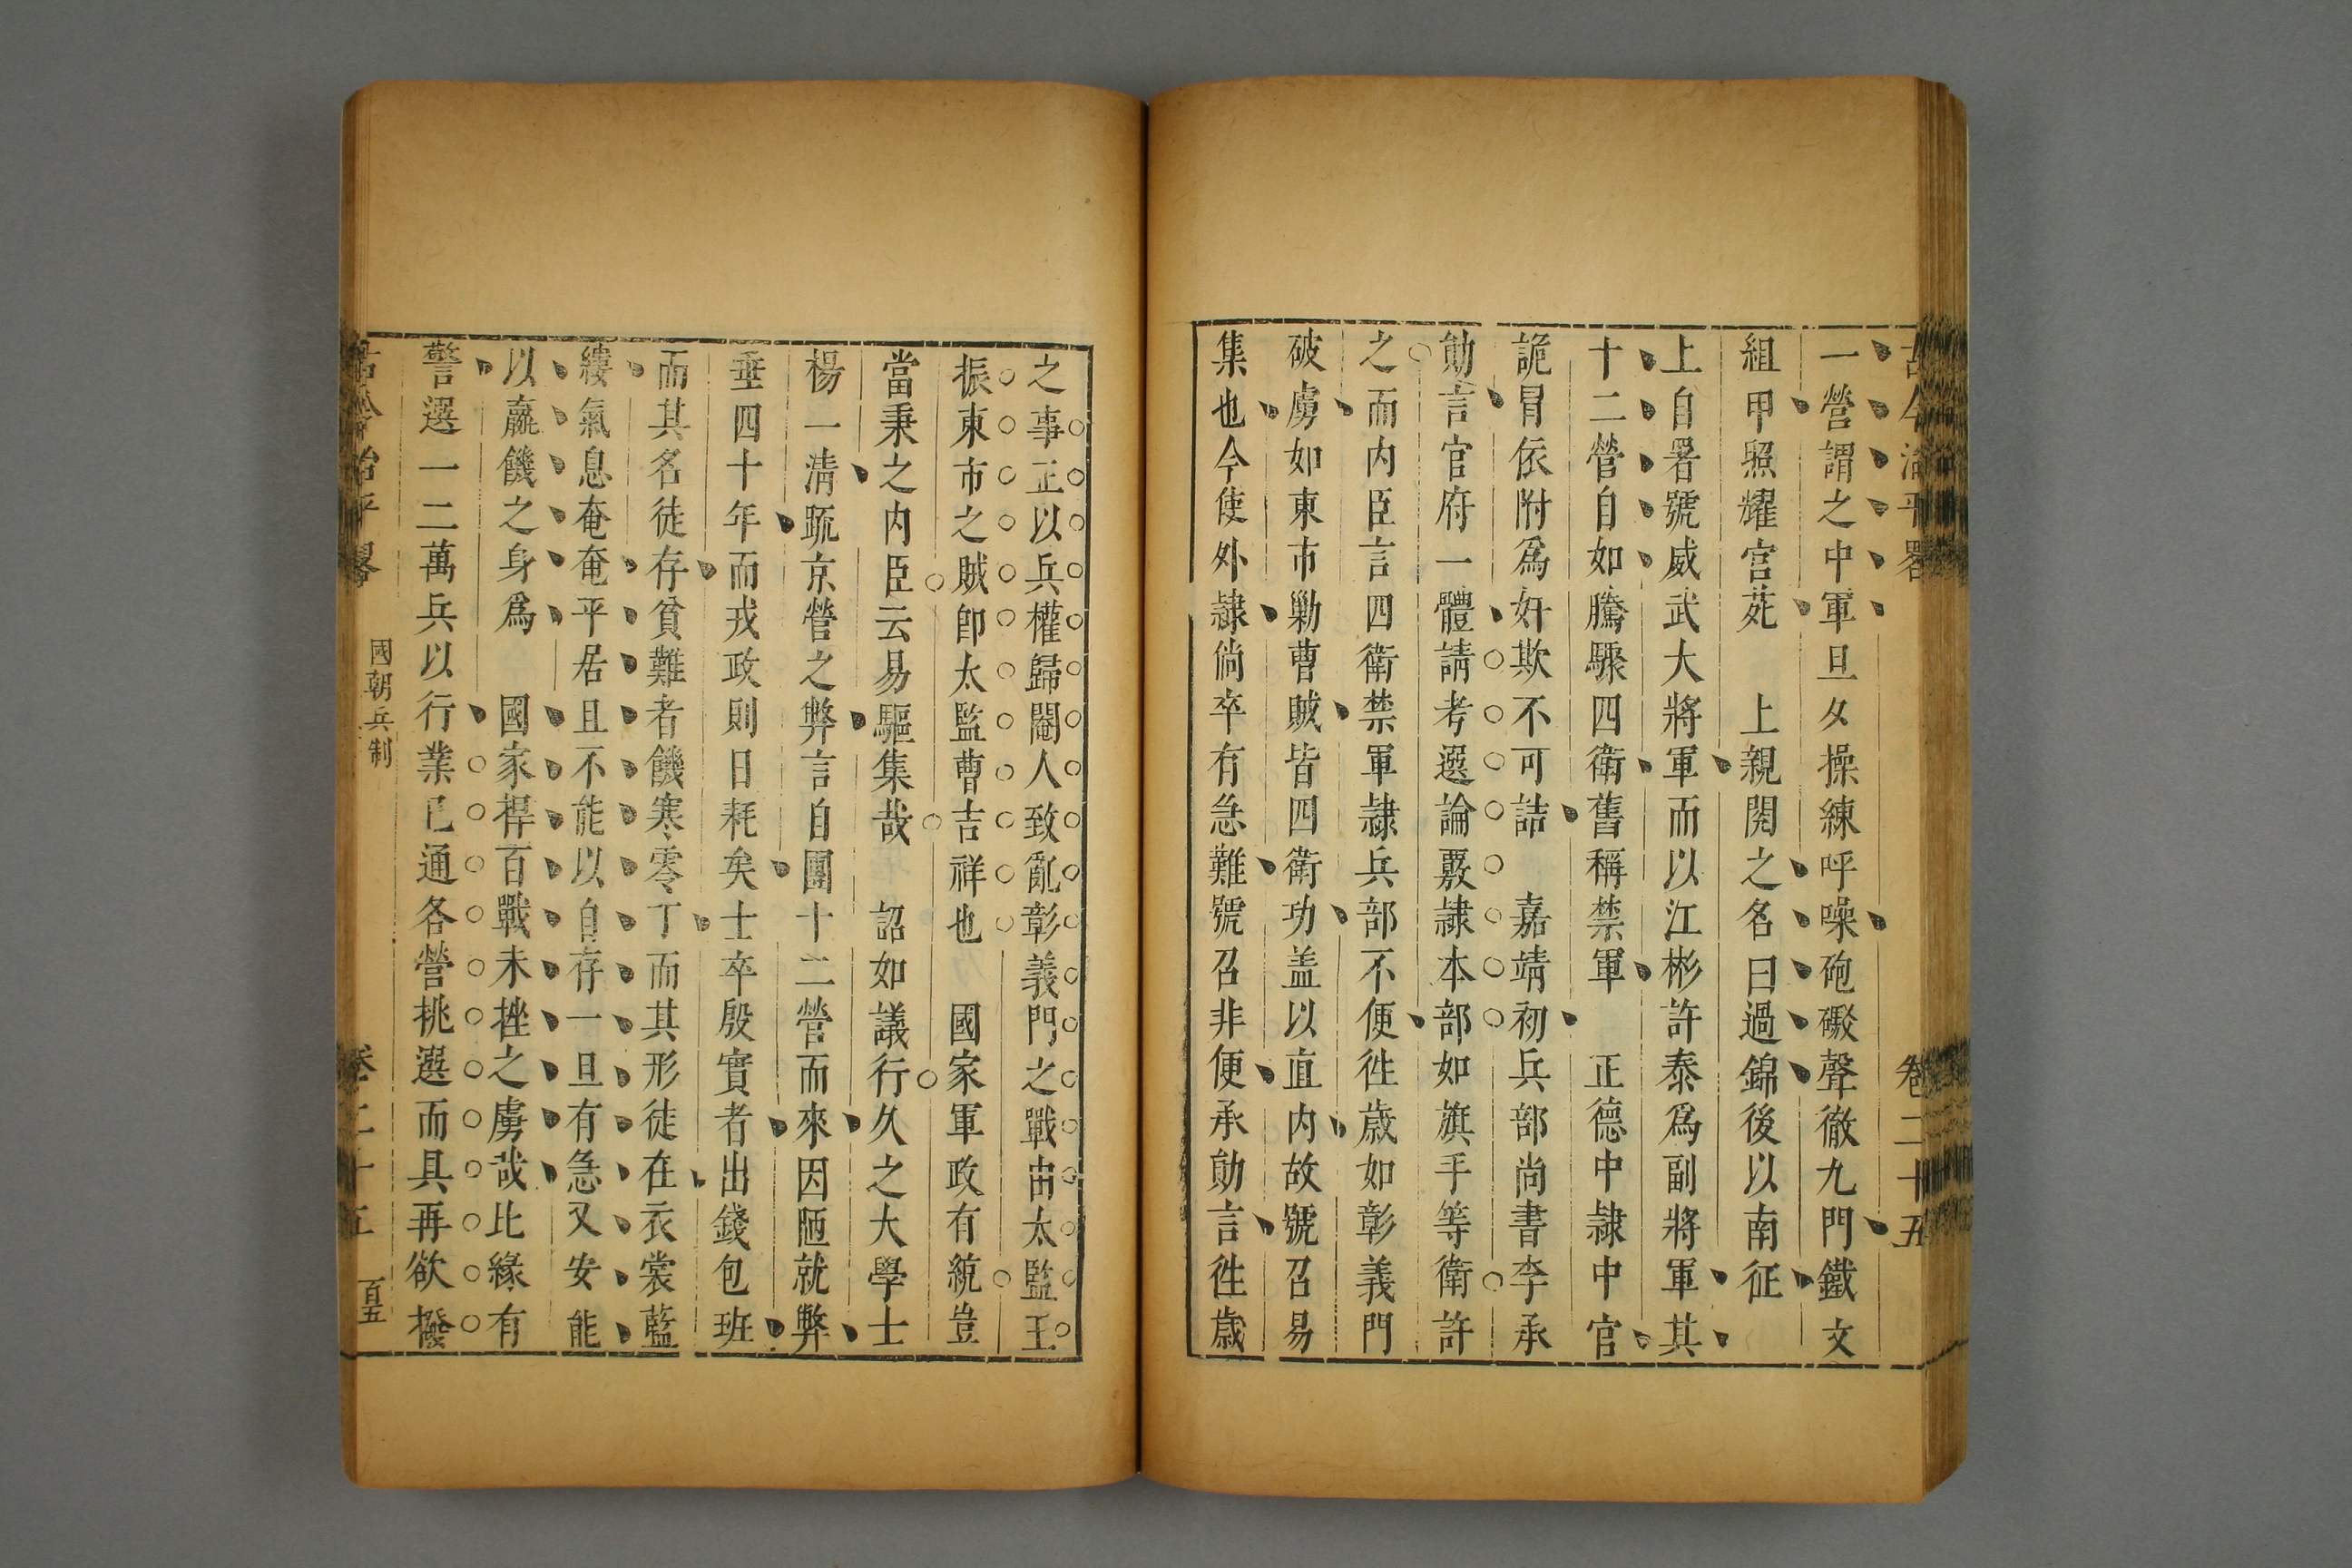 古今治平畧 卷二十五
一營謂之中軍旦夕操練呼噪砲礟聲徹九門鐵文
組甲照耀宫苑 上親閱之名曰過錦後以南征
上自署號威武大將軍而以江彬許泰爲副將軍其
十二營自如騰驤四衛舊稱禁軍 正德中隷中官
詭冒依附爲奸欺不可詰 嘉靖初兵部尚書李承
勛言官府一體請考選論覈隷本部如旗手等衛許
之而内臣言四衛禁軍隷兵部不便徃歳如彰義門
破虜如東市勦曹賊皆四衛功盖以直内故號召易
集也今使外隷倘卒有急難號召非便承勛言徃歳
之事正以兵權歸閹人致亂彰義門之戰由太監王
振東市之賊卽太監曹吉祥也 國家軍政有統豈
當秉之内臣云易驅集哉 詔如議行久之大學士
楊一清疏京營之弊言自團十二營而來因陋就弊
垂四十年而戎政則日耗矣士卒殷實者出錢包班
而其名徒存貧難者饑寒零丁而其形徒在衣裳藍
縷氣息奄奄平居且不能以自存一旦有急又安能
以羸饑之身爲 國家捍百戰未挫之虜哉比緣有
警選一二萬兵以行業已通各營挑選而具再欲撥
古今治平畧 國朝兵制 卷二十五 百五